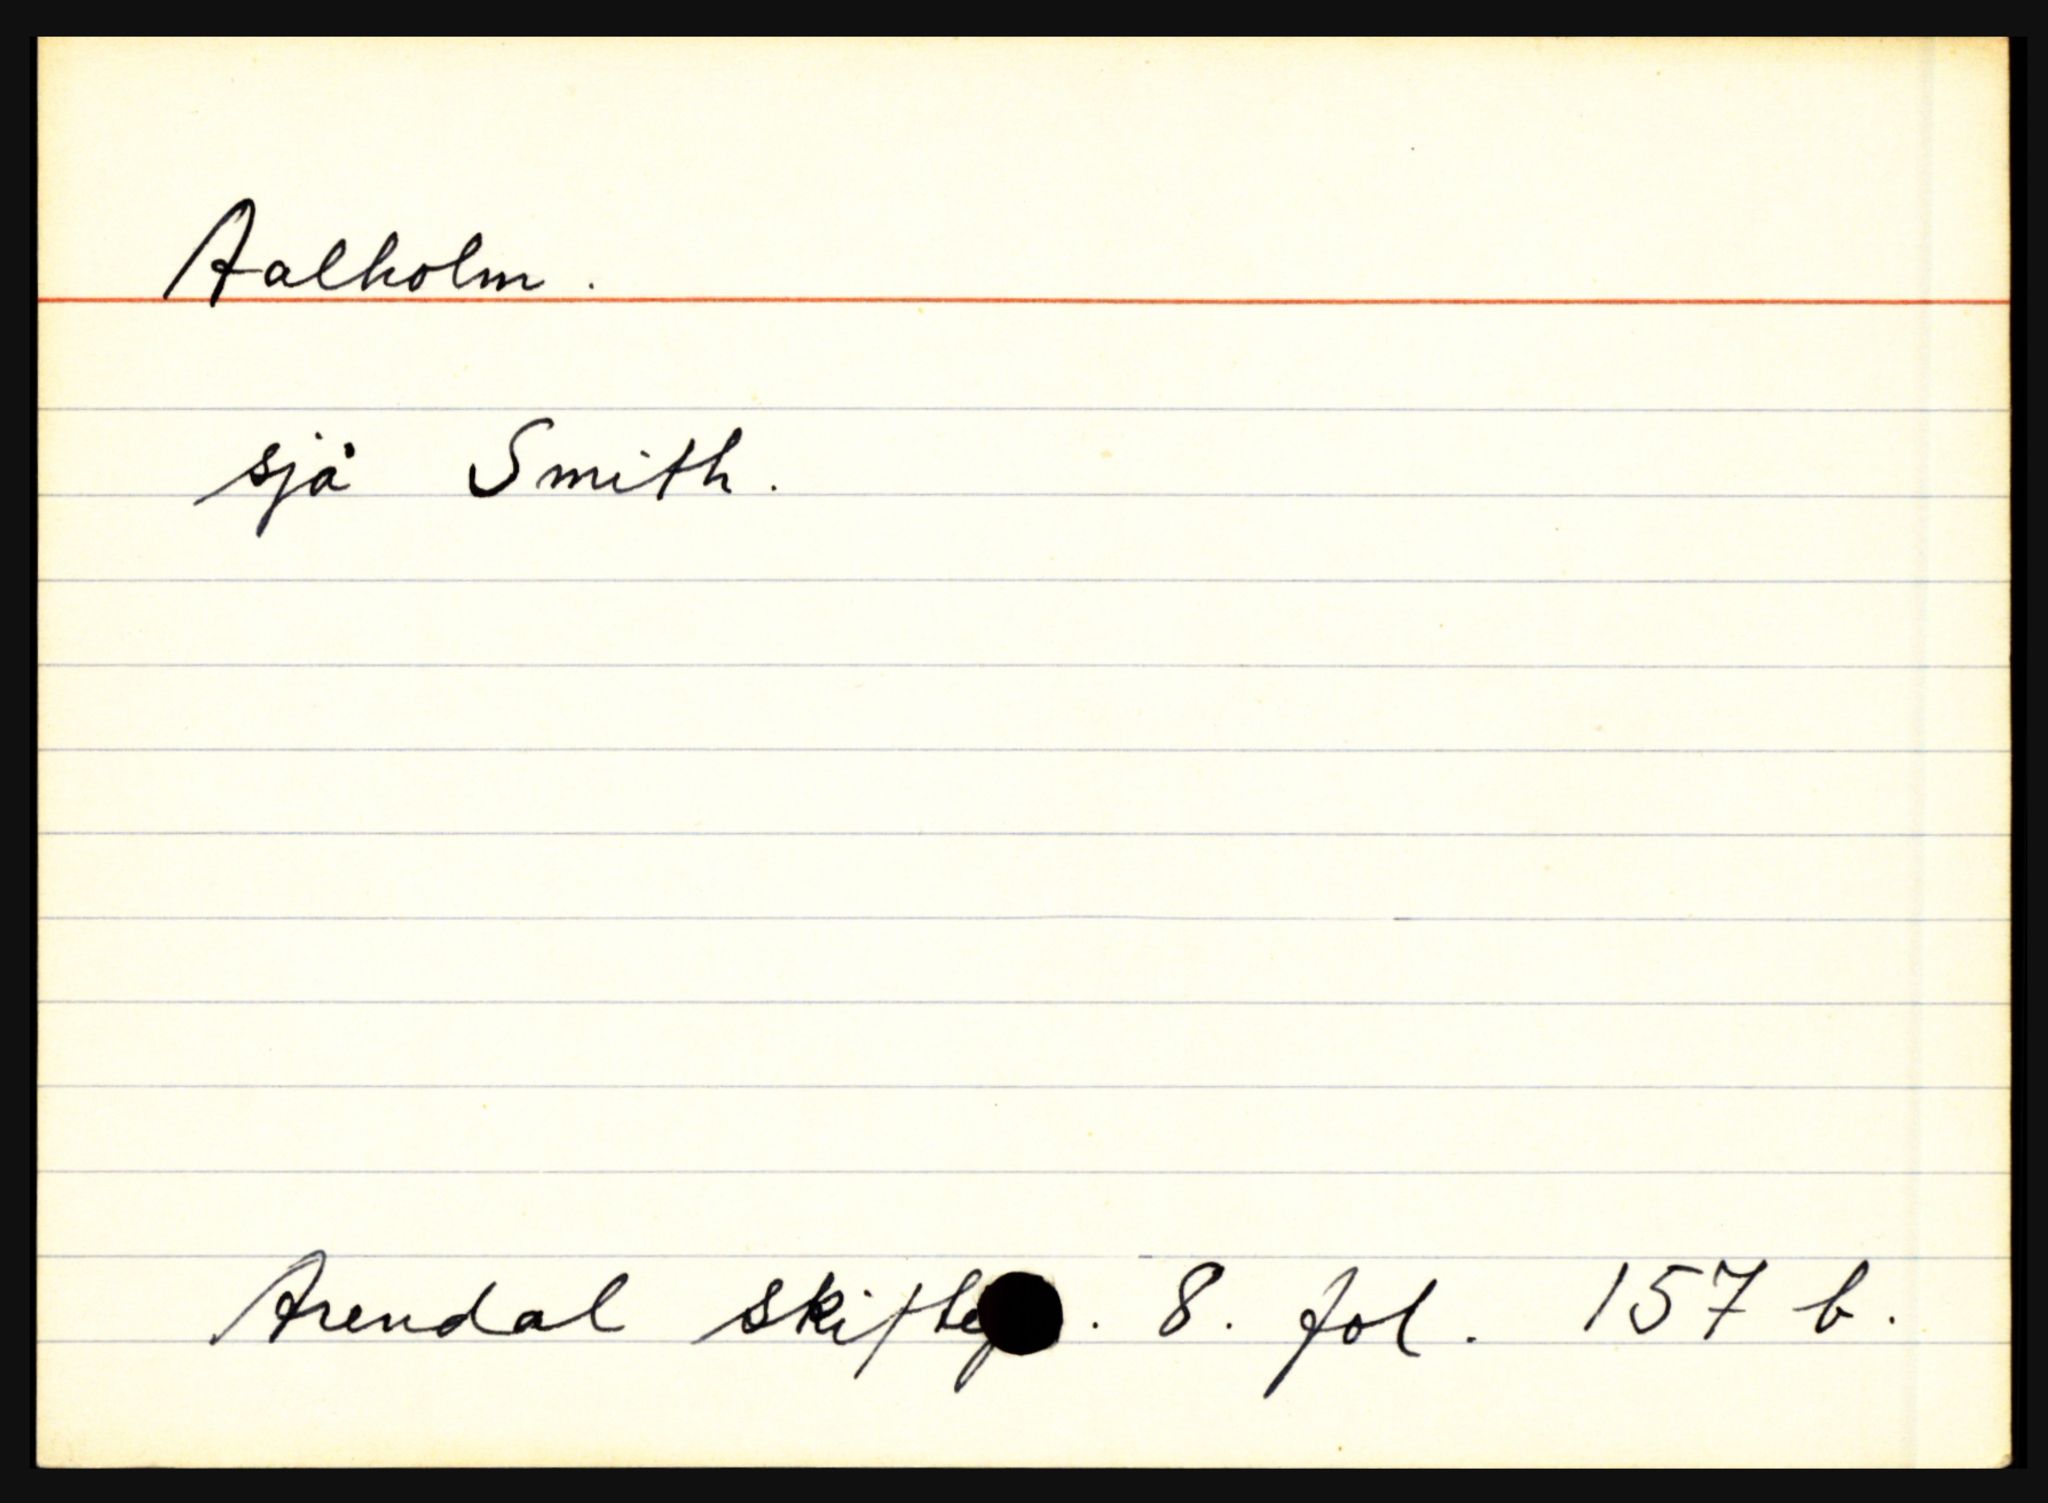 Aalholm.
sjå Smith.
Arendal 8. fol. 157 b.